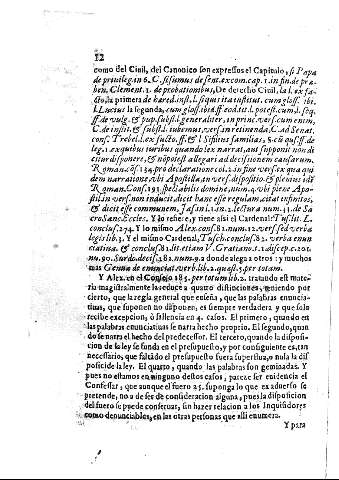 12
como del Civil, del Canonico son expressos el Capitulo, si Papa
de privileg. in 6. C. si summus de sent. excom. cap. 1. in fin. de præ-
ben. Clement. 1. de probationibus, De derecho Civil, la l. ex fa-
cto, la primera de hæred. inst. l. si quis ita institut. cum gloss. ibi.
l. Lucius la segunda, cum gloss. ibi ff. eod. tit. l. potest cum l. seq.
ff. de vulg. & pup. subst. l. generaliter, in princ. vers. cum enim,
C. de instit. & subst. l. iubemus, vers. in retinenda, C. ad Senat.
cons. Trebel. l. ex facto, ff. & l. Si pater familias, §. cū qui ff. de
leg. 1. ex quibus iuribus quando verba narrant, aut supponūt non di
citur disponere, & nō potest allegari ad decisionem causarum,
Roman. cōs. 134. pro declaratione col. 2. in fine vers. ex qua qui
dem narratione. Abi Apostilla, in vers. dispositio, & pleniùs idē
Roman. Cons. 193. spectabilis domine, num. 4. ubi pene Apo-
stil. in vers. non inducit, dicit hanc esse regulam, citat infinitos,
& dicit esse communem, Jas. in l. 1. in 2. lectura num. 11. de Sa
cro San. Eccles. Y lo refiere, y tiene assi el Cardenal: Tus. lit. L.
conclus. 274. Y lo mismo Alex. cons. 81. num. 12. vers. sed verba
legis lib. 3. Y el mismo Cardenal, Tusch. conclus. 82. verba enun
ciatiua. & conclus. 81. lit. et iam V. Gratian. t. 1. discep. 120.
nu. 90. Surdo deci. 182. num. 9. a donde alega a otros: y muchos
mas Genua de enunciat. verb. lib. 2. quæst. 5. per totam.
Y Alex. en el Consejo 185. per totum lib. 2. tratando est mate-
ria magistralmente la reduce a quatro distinciones, teniendo por
cierto, que la regla general que enseña, que las palabras enuncia-
tiuas, que suponen no disponen, es siempre verdadera y que solo
recibe excepcion, ò fallencia en 4. casos. El primero, quando en
las palabras enunciatiuas se narra hecho proprio. El segundo, quan
do se narra el hecho del predecessor. El tercero, quando la disposi-
cion de la ley se funda en el presupuesto, y por consiguiente es, tan
necessario, que faltādo el presupuesto fuera superflua, o nula la dis
posicion de ley. El quarto, quando las palabras son geminadas. Y
pues no estamos en ninguno destos casos, parece ser euidencia el
Confessar, que aunque el fuero 25. suponga lo que ex aduerso se
pretende, no a de ser de consideracion alguna, pues la disposicion
del fuero se puede conseruar, sin hazer relacion a los Inquisidores
como denunciables, en las otras personas que alli enumera.
Y para